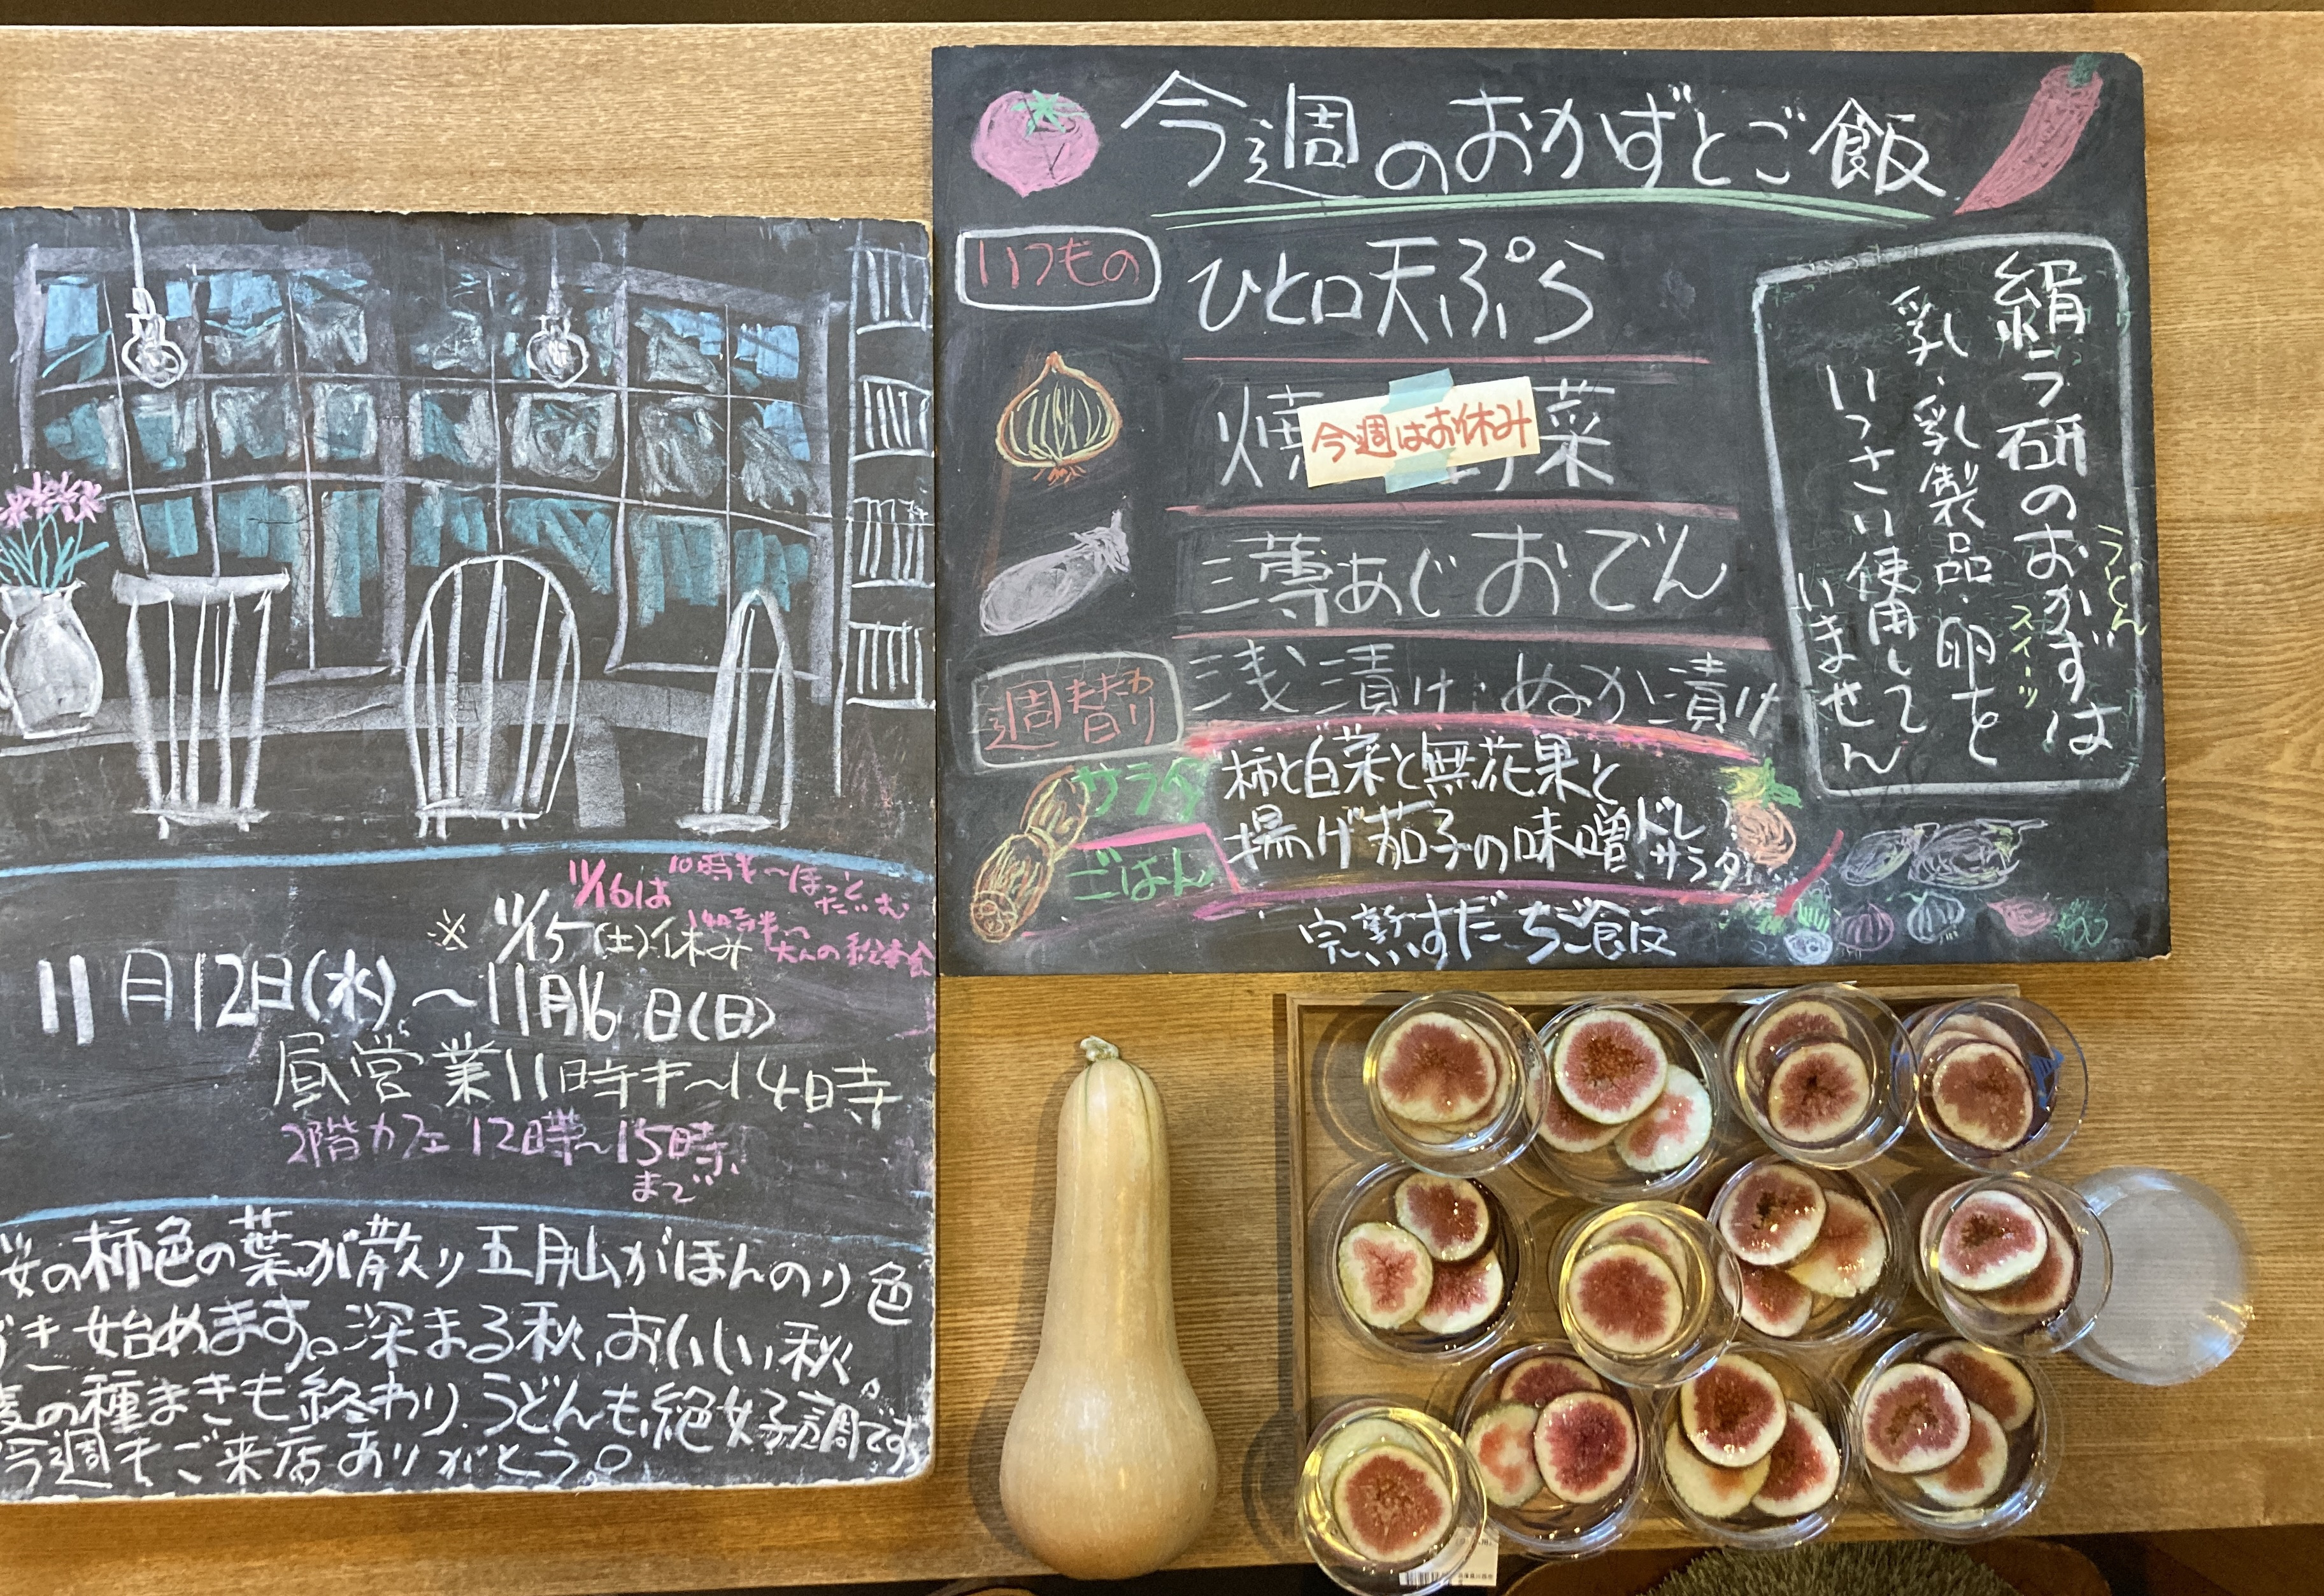 今週のおかずとご飯
いつもの
ひと口天ぷら
焼 菜
今週はお休み
薄あじおでん
週替わり
浅漬け・ぬか漬け
サラダ
柿と白菜と無花果と
揚げ茄子の味噌ドレ
サラダ
ごはん
完熟すだちご飯
絹ラ研のおかずは
うどん
スイーツ
乳・乳製品・卵を
いっさい使用して
いません
11/16は
10時半〜ほっと
たいむ
14時半〜
大人の絵本会
※ 11/15(土)休み
11月12日(水)〜11月16日(日)
昼営業11時半〜14時
2階カフェ 12時〜15時
まで
の柿色の葉が散り五月山がほんのり色
づき始めます。深まる秋、おいしい秋。
麦の種まきも終わり、うどんも絶好調です
今週もご来店ありがとう。